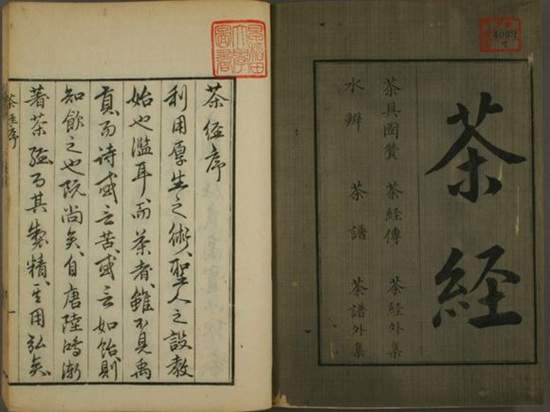 茶經
茶具圖贊 茶經傳 茶經外集
水辨 茶譜 茶譜外集
茶經序
利用厚生之術聖人之設教
始也濫耳而茶者雖不見禹
貢而詩或云苦或云如飴則
知飲之也既尚矣自唐陸鴻漸
著茶經而其製精其用弘矣
茶經序
一